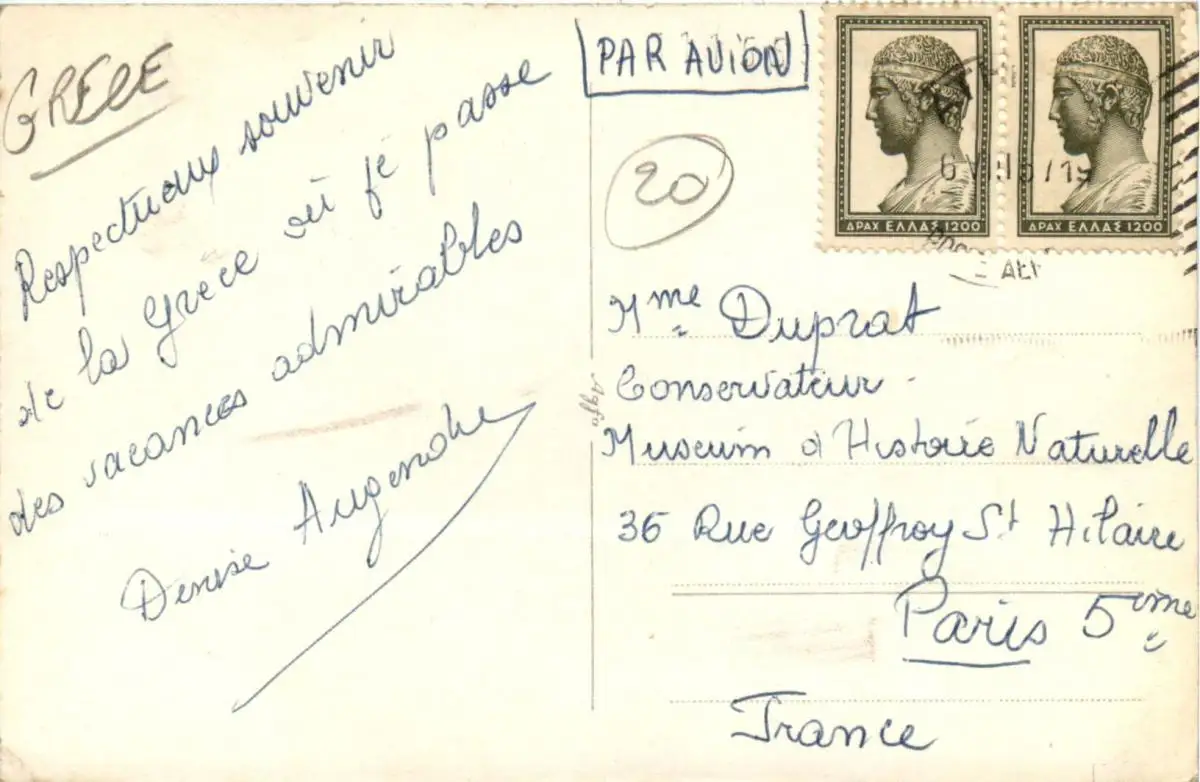 GRECE
Respectueux souvenir
de la Grèce où je passe
des vacances admirables
Denise
PAR AVION
20
ΔΡΑΧ ΕΛΛΑΣ 1200
ΔΡΑΧ ΕΛΛΑΣ 1200
Agfa
Mme Duprat
Conservateur
Museum d'Histoire Naturelle
36 Rue Geoffroy St Hilaire
Paris 5ème
France